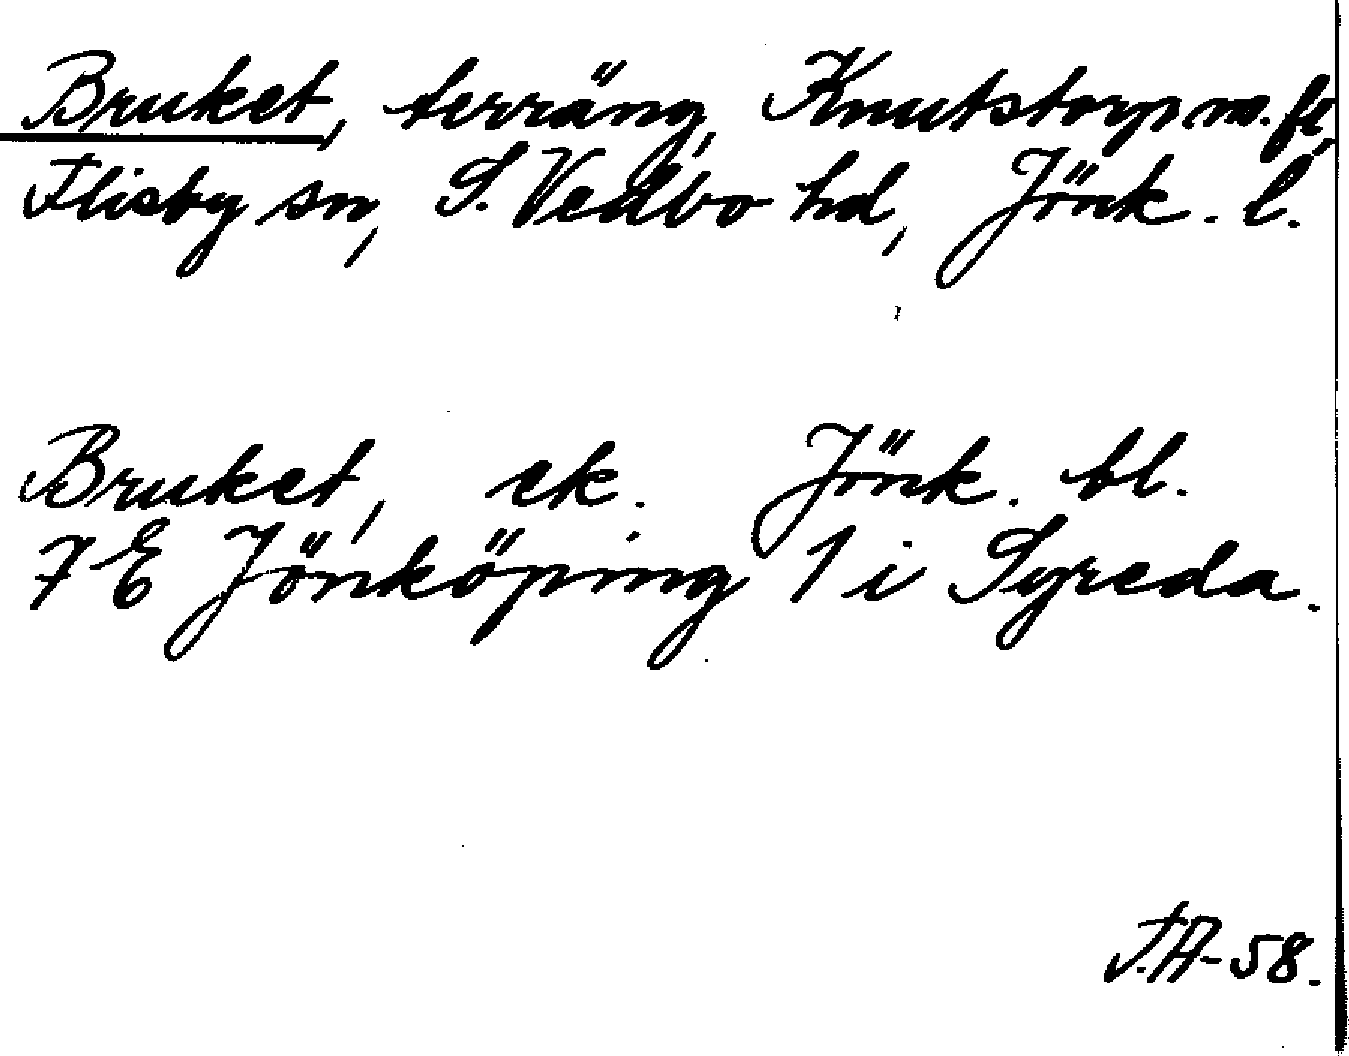 Bruket, terräng, Knutstorp m.fl.
Flisby sn, S. Vedbo hd, Jönk. l.
Bruket, ek. Jönk. bl.
7 E Jönköping 1 i Syreda.
J.A-58.